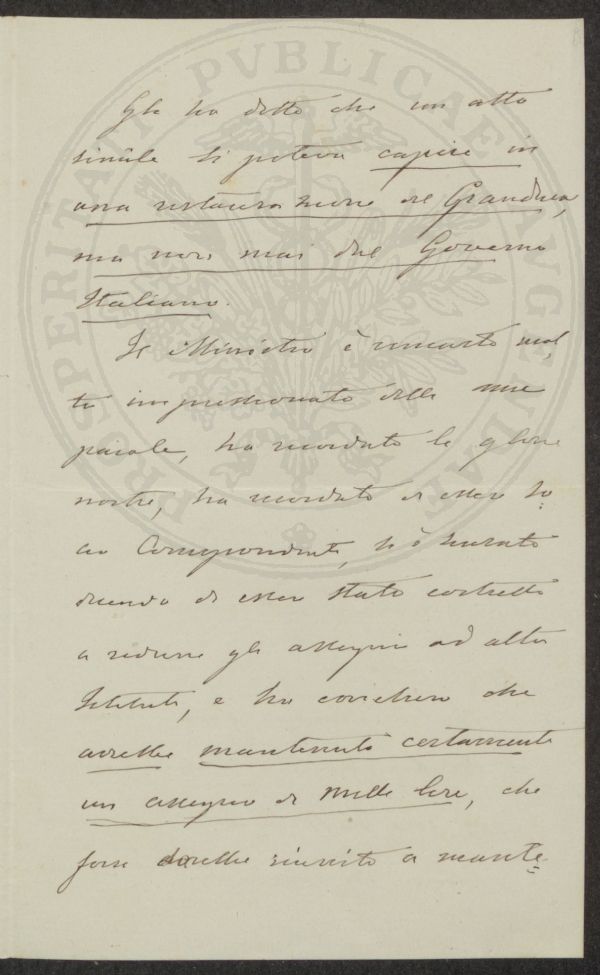 PROSPERITATI PVBLICAE AVGENDAE
Gli ho detto che un atto
simile si poteva capire in
una restaurazione del Granduca,
ma non mai dal Governo
Italiano.
Il Ministro è rimasto mol-
to impressionato delle mie
parole, ha ricordato le glorie
nostre, ha ricordato di esser So-
cio Corrispondente, si è scusato
dicendo di esser stato costretto
a ridurre gli assegni ad altri
Istituti, e ha concluso che
avrebbe mantenuto certamente
un assegno di Mille lire, che
forse sarebbe riuscito a mante-